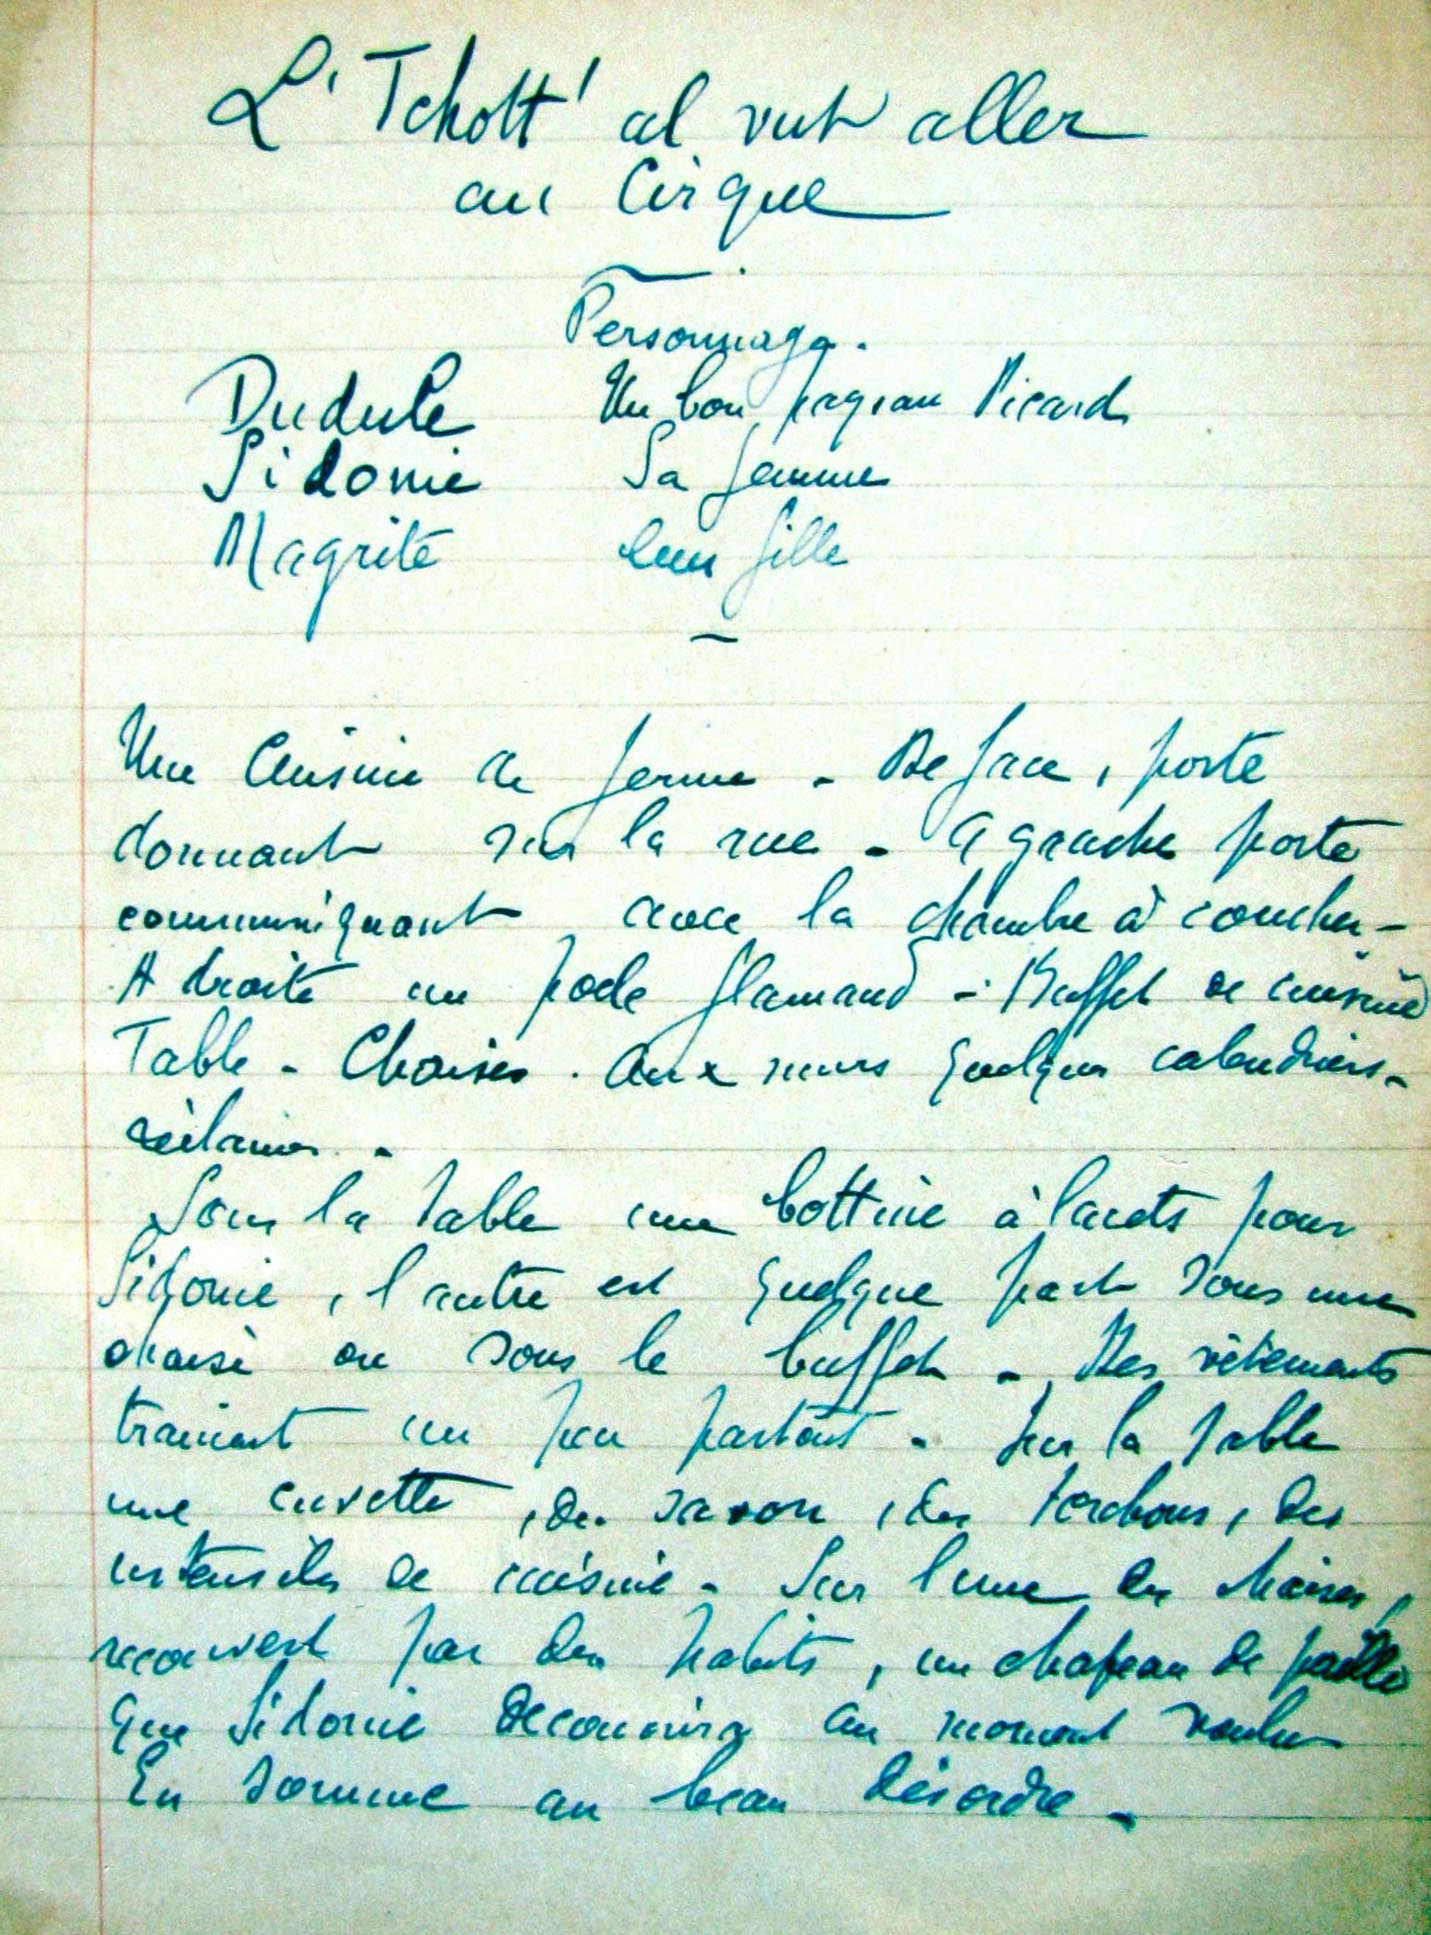 L' Tchott' al vut aller
au Cirque
Personnages.
Dudule Un bon paysan Picard
Sidonie Sa femme
Magrite leur fille
Une Cuisine de ferme - De face, porte
donnant sur la rue - A gauche porte
communiquant avec la chambre à coucher -
A droite un poele flamand - Buffet de cuisine
Table - Chaises. Aux murs quelques calendriers-
réclames -
Sous la table une bottine à lacets pour
Sidonie, l'autre est quelque part sous une
chaise ou sous le buffet - Des vêtements
trainent un peu partout - Sur la table
une cuvette, du savon, des torchons, des
ustensiles de cuisine - Sur l'une des chaises,
recouvert par des habits, un chapeau de paille
que Sidonie decouvrira au moment voulu
En somme un beau désordre -